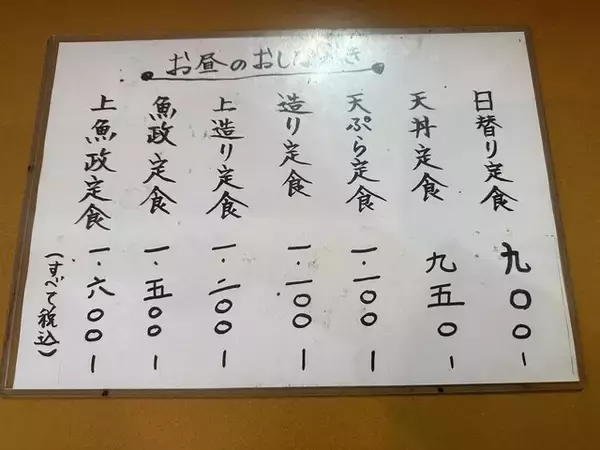 お昼のおしながき
日替り定食 九〇〇-
天丼定食 九五〇-
天ぷら定食 一・一〇〇-
造り定食 一・一〇〇-
上造り定食 一・二〇〇-
魚政定食 一・五〇〇-
上魚政定食 一・六〇〇-
(すべて税込)